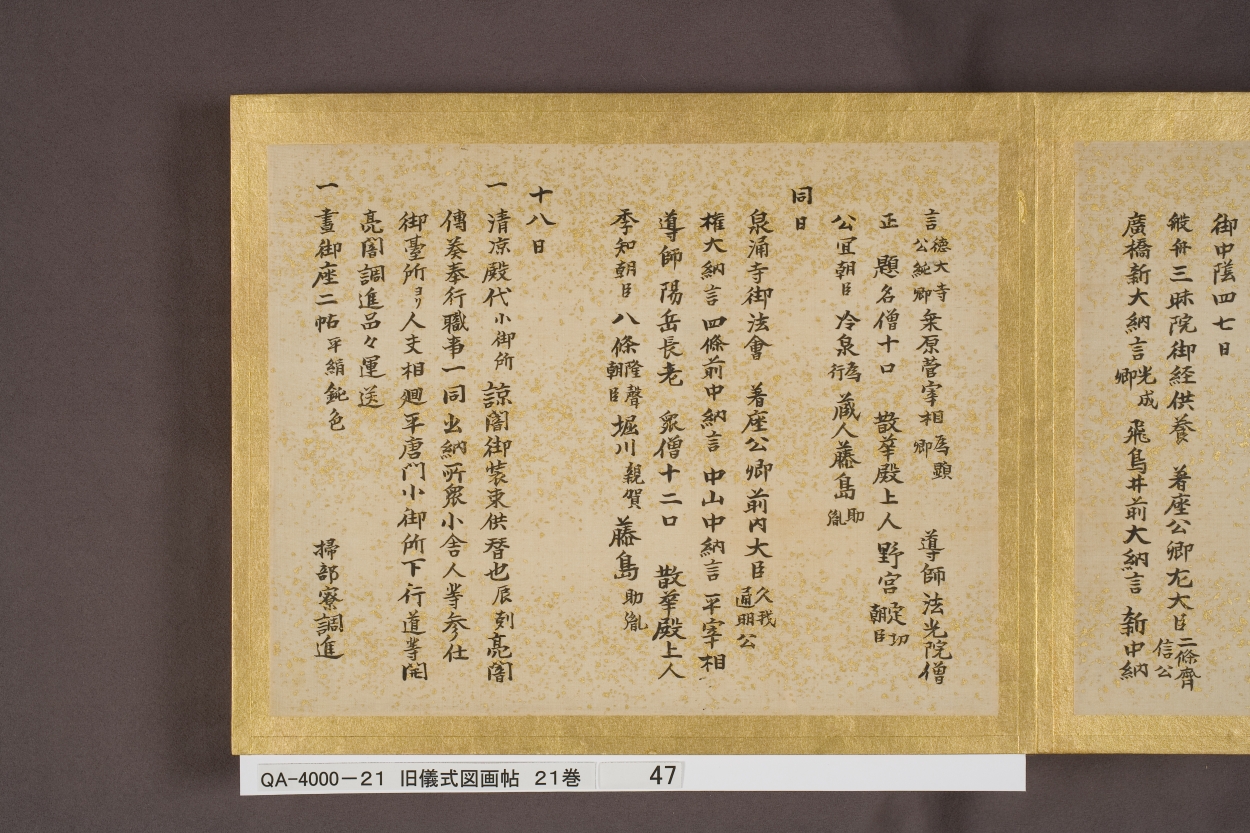 御中蔭四七日
般舟三昧院御経供養 着座公卿左大臣二條齊信公
廣橋新大納言光成卿 飛鳥井前大納言 新中納
言徳大寺公純卿 桒原菅宰相為顕卿 導師法光院僧
正 題名僧十口 散華殿上人 野宮定功朝臣
公冝朝臣 冷泉為行 蔵人藤島助胤
同日
泉涌寺御法會 着座公卿前内大臣久我通明公
権大納言 四條前中納言 中山中納言 平宰相
導師陽岳長老 衆僧十二口 散華殿上人
季知朝臣 八條隆聲朝臣 堀川親賀 藤島助胤
十八日
一 清凉殿代小御所 諒闇御装束供替也辰刻亮闇
傳奏奉行職事一同出納所衆小舎人等参仕
御臺所ヨリ人支相廻平唐門小御所下行道等開
亮闇調進品々運送
一 晝御座二帖平絹鈍色 掃部寮調進
QA-4000-21 旧儀式図画帖 21巻 47